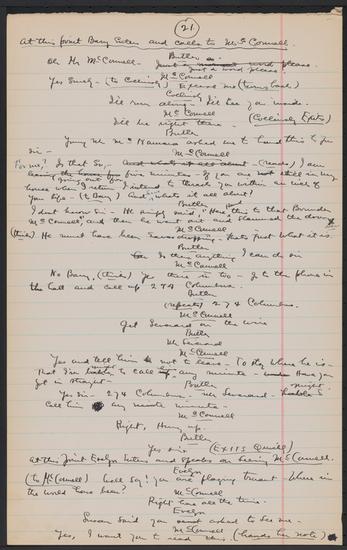 21
At this point Barry enters and calls to McConnell.
Butler
Oh Mr McConnell - Just a word please.
McConnell
Yes Surely - (to Collins) Excuse me (turns back)
Collins
I'll run along - I'll see you inside.
McConnell
I'll be right there - (Collins Exits)
Butler
Young Mr McNamara asked me to hand this to you
Sir -
McConnell
For me? Is that so, (reads) I am
going out for five minutes - If you are not still in my
house when I return I intend to thrash you within an inch of
your life - (to Barry) And what's it all about?
Butler
I don't know Sir - He simply said, "Give this to that
McConnell", and then he went out and slammed the door
McConnell
(thinks) He must have been - that's just what it is.
Butler
Is there anything I can do sir
McConnell
No Barry, (thinks) Yes there is too - Go to the phone in
the hall and call up 274 Columbus.
Butler
(repeats) 274 Columbus.
McConnell
Get Seward on the wire
Butler
Mr Seward
McConnell
Yes and tell him not to leave - To stay where he is -
that I'm to call any minute - Have you
got it straight -
Butler
Yes Sir - 274 Columbus - Mr Seward -
call him any minute
McConnell
Right, Hurry up.
Butler
Yes Sir (Exits Quickly)
At this point Evelyn enters and speaks on seeing McConnell.
Evelyn
(to McConnell) Well Say! You are playing truant - Where in
the world have you been?
McConnell
Right here all the time.
Evelyn
Susan said you asked to see me -
McConnell
Yes, I want you to read this, (hands her note)